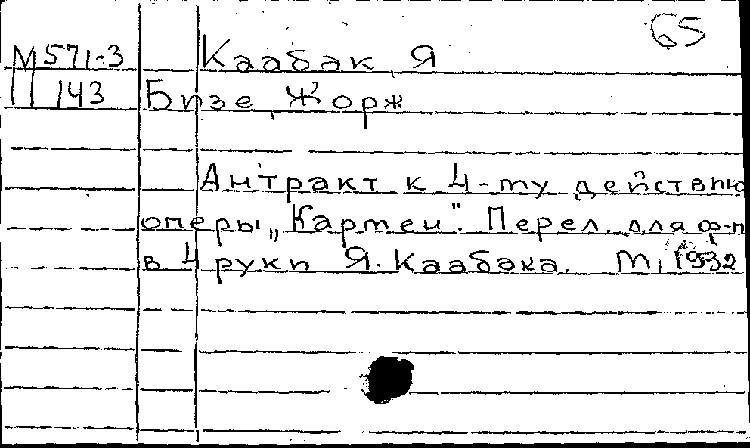 65
М571-3 Каабак Я
11 143 Бизе, Жорж
Антракт к 4-ту действию
оперы „Кармен". Перел. для ф-п
в 4 руки Я. Каабака. М, 1932